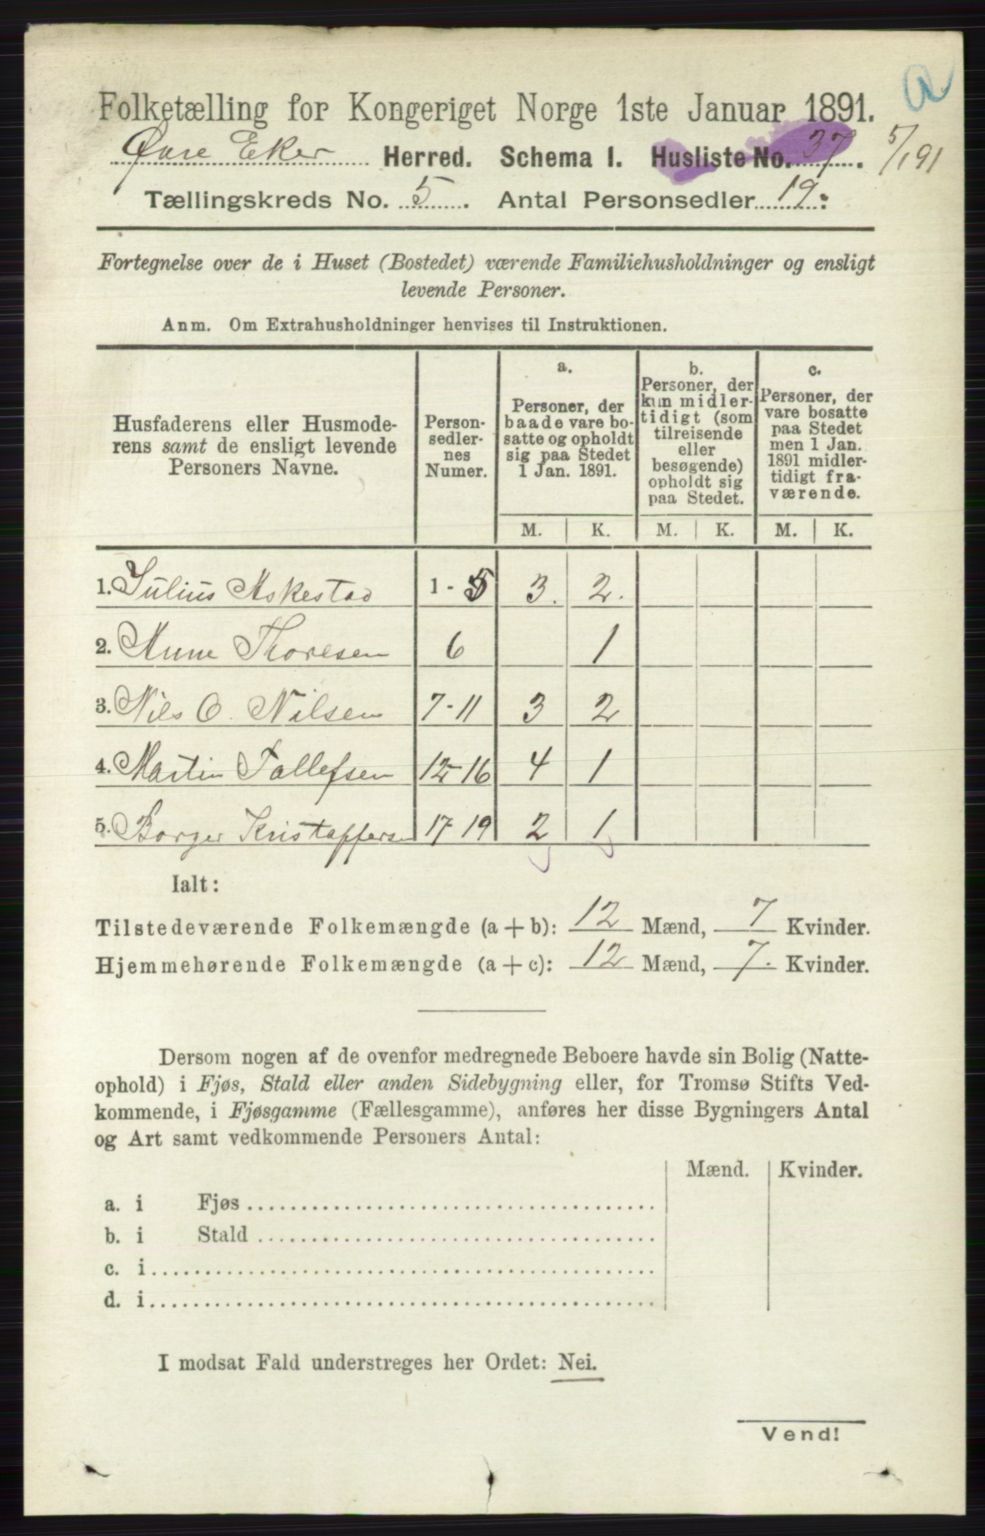 Folketælling for Kongeriget Norge 1ste Januar 1891.
Øvre Eker Herred. Schema I. Husliste No. 37. 5/191
Tællingskreds No. 5. Antal Personsedler 19.
Fortegnelse over de i Huset (Bostedet) værende Familiehusholdninger og ensligt
levende Personer.
Anm. Om Extrahusholdninger henvises til Instruktionen.
Husfaderens eller Husmode-
rens samt de ensligt levende
Personers Navne.
Person-
sedler-
nes
Numer.
a.
Personer, der
baade vare bo-
satte og opholdt
sig paa Stedet
1 Jan. 1891.
b.
Personer, der
kun midler-
tidigt (som
tilreisende
eller
besøgende)
opholdt sig
paa Stedet.
c.
Personer, der
vare bosatte
paa Stedet
men 1 Jan.
1891 midler-
tidigt fra-
værende.
M. K. M. K. M. K.
1. Julius Askestad 1 - 5 3. 2.
2. Anne Thoresen 6 1
3. Nils O. Nilsen 7-11 3 2
4. Martin Tallefsen 12-16 4 1
5. Borger Kristoffersen 17-19 2 1
Ialt:
Tilstedeværende Folkemængde (a + b): 12 Mænd, 7 Kvinder.
Hjemmehørende Folkemængde (a + c): 12 Mænd, 7. Kvinder.
Dersom nogen af de ovenfor medregnede Beboere havde sin Bolig (Natte-
ophold) i Fjøs, Stald eller anden Sidebygning eller, for Tromsø Stifts Ved-
kommende, i Fjøsgamme (Fællesgamme), anføres her disse Bygningers Antal
og Art samt vedkommende Personers Antal:
Mænd. Kvinder.
a. i Fjøs
b. i Stald
c. i
d. i
I modsat Fald understreges her Ordet: Nei.
Vend!